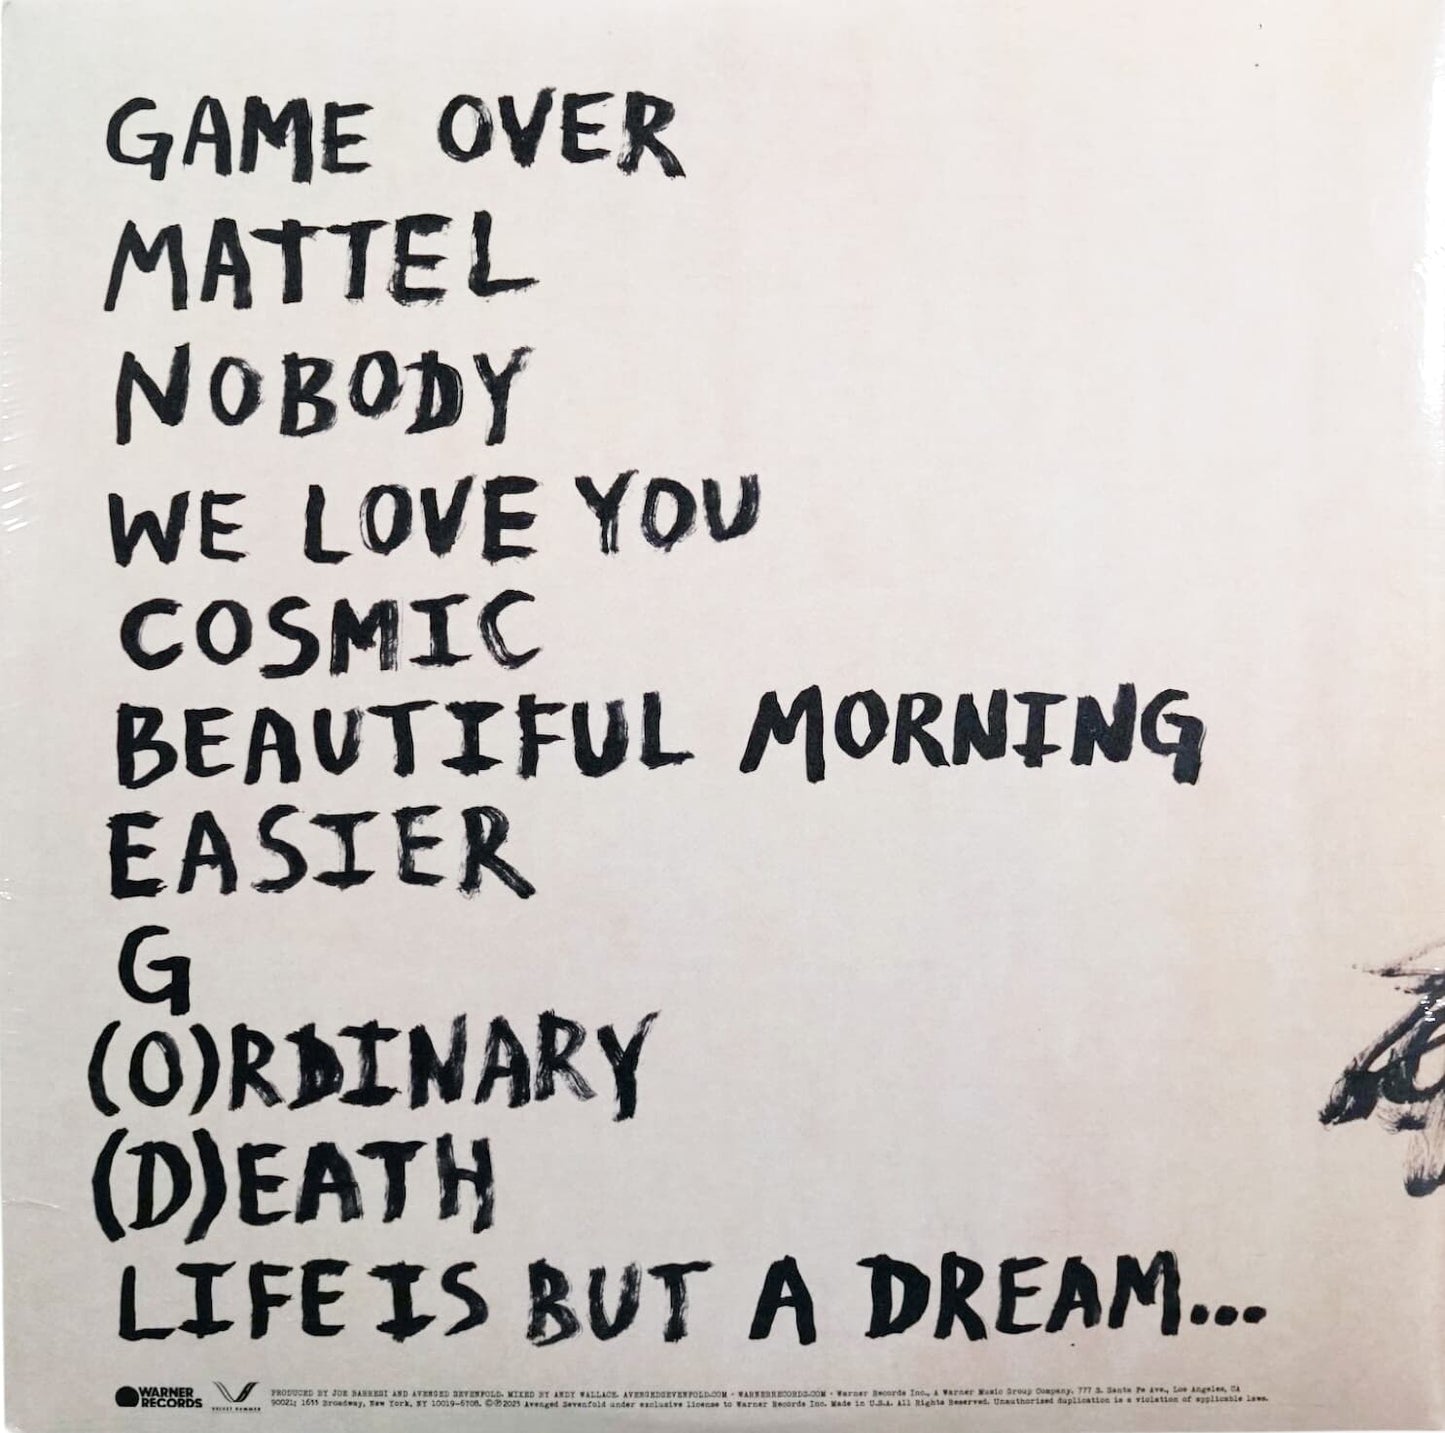 GAME OVER
MATTEL
NOBODY
WE LOVE YOU
COSMIC
BEAUTIFUL MORNING
EASIER
G
(O)RDINARY
(D)EATH
LIFE IS BUT A DREAM...
WARNER
RECORDS
VELVET HAMMER
PRODUCED BY JOE BARRESI AND AVENGED SEVENFOLD. MIXED BY ANDY WALLACE. AVENGEDSEVENFOLD.COM • WARNERRECORDS.COM • Warner Records Inc., A Warner Music Group Company. 777 S. Santa Fe Ave., Los Angeles, CA
90021; 1633 Broadway, New York, NY 10019-6708. ©℗2023 Avenged Sevenfold under exclusive license to Warner Records Inc. Made in U.S.A. All Rights Reserved. Unauthorized duplication is a violation of applicable laws.